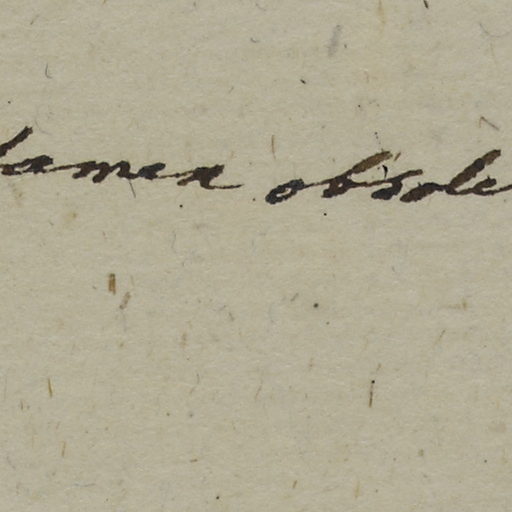 lamea obsole